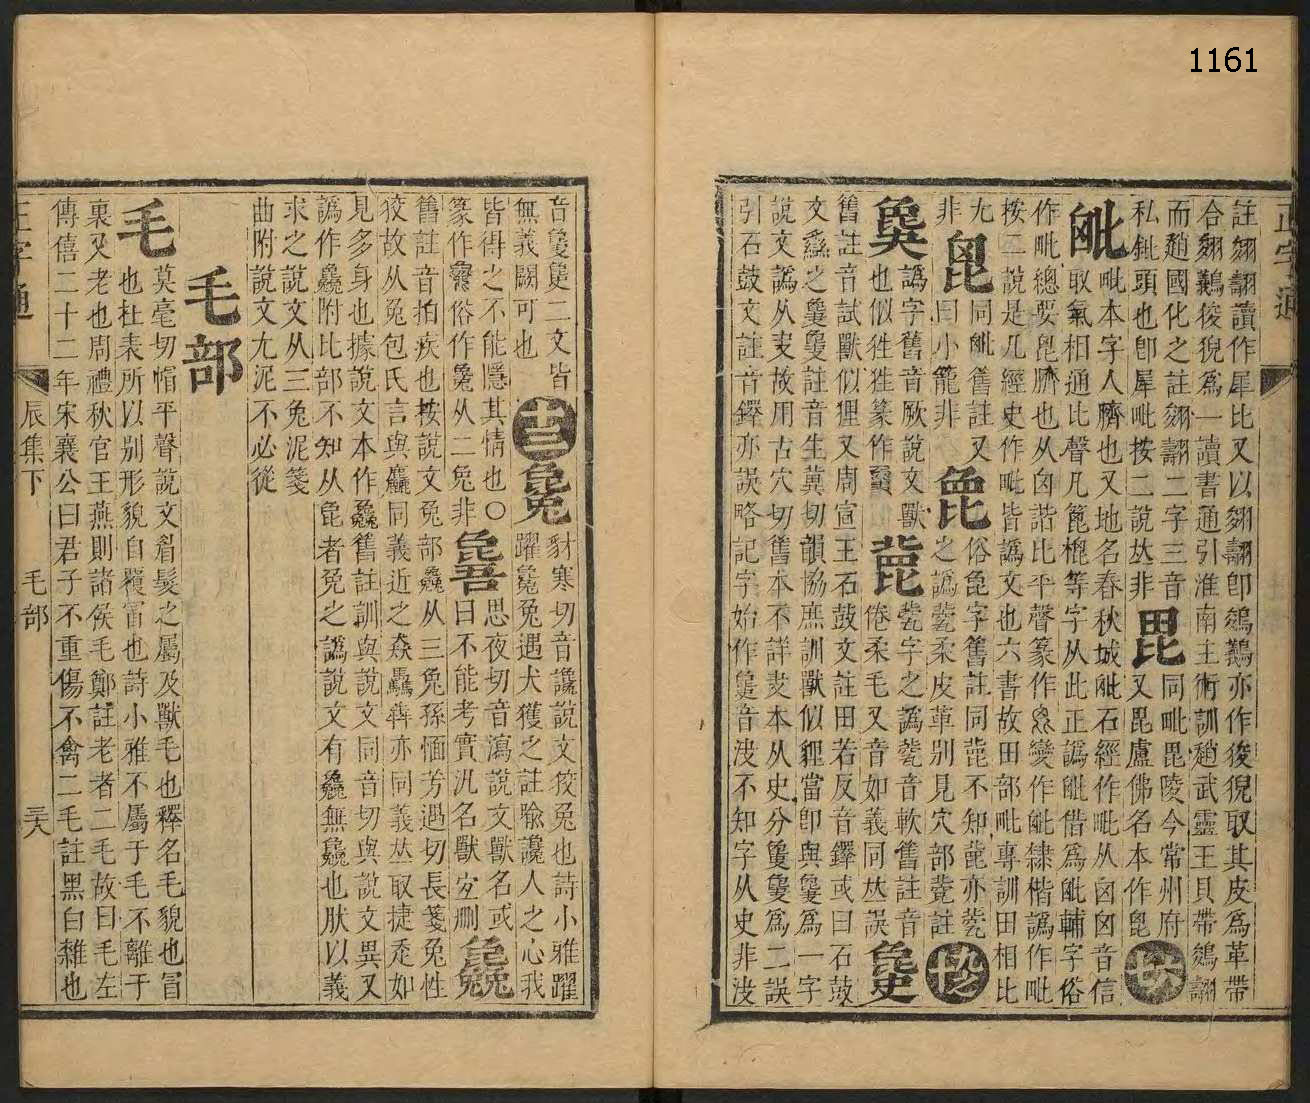 1161
正字通
註翗翿讀作犀比又以翗翿卽鵕鸃亦作俊猊取其皮爲革帶
合翗鸃俊猊爲一讀書通引淮南王術訓趙武靈王貝帶鵕翿
而趙國化之註翗翿二字三音
私鈚頭也卽犀毗按二說𠀤非 毘 同毗毘陵今常州府
又毘盧佛名本作毘
毗本字人臍也又地名春秋城毗石經作毗从囟囟音信
取氣相通比聲凡篦榿等字从此正譌毗借爲毗輔字俗
作毗總要毘臍也从囟諧比平聲篆作 變作毗隷楷譌作毗
按二說是凡經史作毗皆譌文也六書故田部毗專訓田相比
尤非 同毗舊註又同小籠非
俗㲋字舊註同 不知 亦 之譌 柔皮革別見穴部 註
譌字舊音厥說文獸也似狌狌篆作
字之譌 音軟舊註音倦柔毛又音如義同𠀤誤
舊註音試獸似狸又周宣王石鼓文註田若反音鐸或曰石鼓
文 之 註音生冀切韻協庶訓獸似貍當卽與 爲一字
說文譌从叏故用古穴切舊本不詳叏本从史分 爲二誤
引石鼓文註音鐸亦誤略記字始作 音浚不知字从史非浚
音 二文皆無義闕可也 十三 豺寒切音讒說文狡兔也詩小雅躍
躍毚兔遇犬獲之註喻讒人之心我
皆得之不能隱其情也〇 思夜切音瀉說文獸名或
篆作 俗作 从二兔非 曰不能考實汎名獸宜刪
舊註音拍疾也按說文兔部 从三兔孫愐芳遇切長箋兔性
狡故从兔包氏言與麤同義近之猋驫犇亦同義𠀤取捷走如
見多身也據說文本作 舊註訓與說文同音切與說文異又
譌作 附比部不知从㲋者兔之譌說文有 無 也肰以義
求之說文从三兔泥箋
曲附說文尤泥不必從
毛部
毛 莫毫切帽平聲說文眉髮之屬及獸毛也釋名毛貌也冒
也杜表所以別形貌自覆冒也詩小雅不屬于毛不離于
裏又老也周禮秋官王燕則諸侯毛鄭註老者二毛故曰毛左
傳僖二十二年宋襄公曰君子不重傷不禽二毛註黑白雜也
正字通 辰集下 毛部